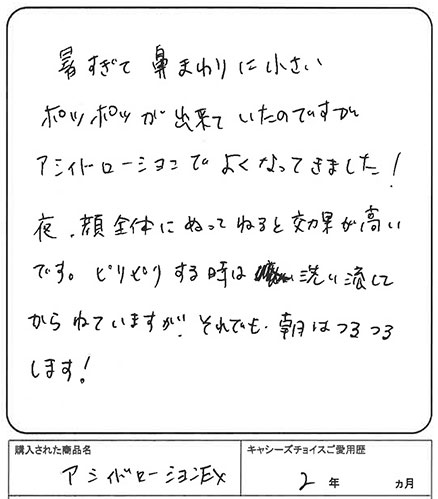 暑すぎて 鼻まわりに小さい
ポツポツが出来ていたのですが
アシィドローションでよくなってきました!
夜、顔全体にぬってねると効果が高い
です。ピリピリする時は 洗い流して
からねていますが、それでも、朝はつるつる
します!
購入された商品名
キャシーズチョイスご愛用歴
アシィドローションEX
2 年 ヵ月